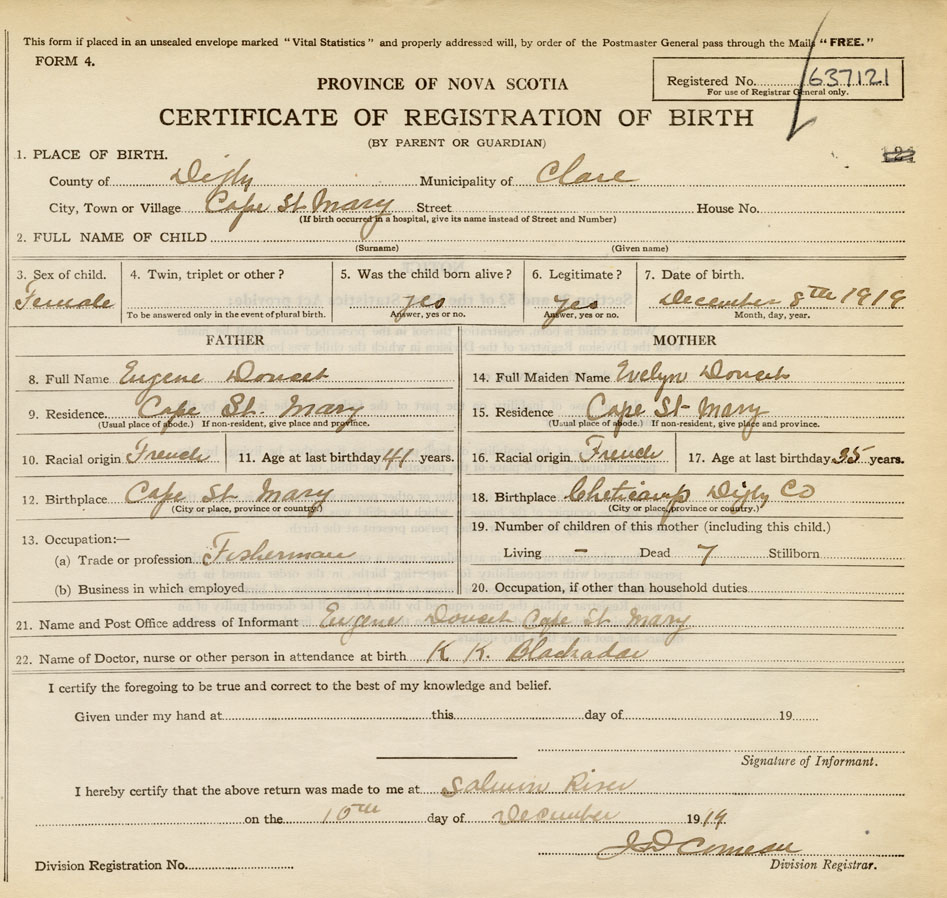 This form if placed in an unsealed envelope marked "Vital Statistics" and properly addressed will, by order of the Postmaster General pass through the Mails "FREE."
FORM 4.
Registered No. 637121
For use of Registrar General only.
PROVINCE OF NOVA SCOTIA
CERTIFICATE OF REGISTRATION OF BIRTH
(BY PARENT OR GUARDIAN)
1. PLACE OF BIRTH.
County of Digby Municipality of Clare
City, Town or Village Cape St Mary Street House No.
(If birth occurred in a hospital, give its name instead of Street and Number)
2. FULL NAME OF CHILD
(Surname) (Given name)
3. Sex of child. 4. Twin, triplet or other? 5. Was the child born alive? 6. Legitimate? 7. Date of birth.
Female yes yes December 8th 1919
To be answered only in the event of plural birth. Answer, yes or no. Answer, yes or no. Month, day, year.
FATHER MOTHER
8. Full Name Eugene Doucet 14. Full Maiden Name Evelyn Doucet
9. Residence Cape St. Mary 15. Residence Cape St Mary
(Usual place of abode.) If non-resident, give place and province. (Usual place of abode.) If non-resident, give place and province.
10. Racial origin French 11. Age at last birthday 41 years. 16. Racial origin French 17. Age at last birthday 35 years.
12. Birthplace Cape St Mary 18. Birthplace Cheticamp Digby Co
(City or place, province or country.) (City or place, province or country.)
13. Occupation:— 19. Number of children of this mother (including this child.)
(a) Trade or profession Fisherman Living – Dead 7 Stillborn
(b) Business in which employed 20. Occupation, if other than household duties
21. Name and Post Office address of Informant Eugene Doucet Cape St Mary
22. Name of Doctor, nurse or other person in attendance at birth K K. Blackadar
I certify the foregoing to be true and correct to the best of my knowledge and belief.
Given under my hand at this day of 19
Signature of Informant.
I hereby certify that the above return was made to me at Salmon River
on the 10th day of December 1919
J D Comeau
Division Registration No. Division Registrar.